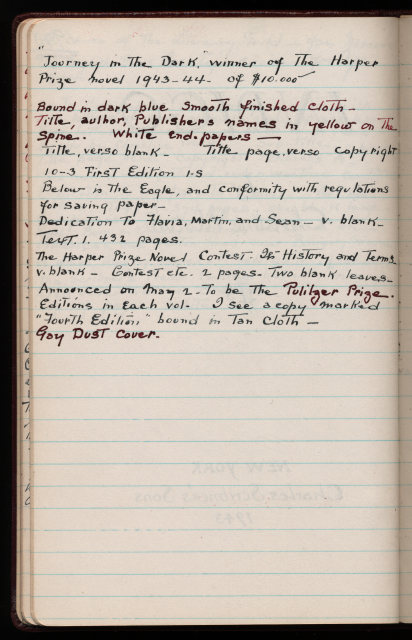 "Journey in The Dark," winner of The Harper
Prize novel 1943-44- of $10.000
Bound in dark blue smooth finished cloth-
Title, author, Publishers names in yellow on The
spine. White end-papers —
Title, verso blank- Title page, verso copyright
10-3 First Edition 1-S
Below is the Eagle, and conformity with regulations
for saving paper-
Dedication To Flavia, Martin, and Sean- v. blank-
Text. 1. 432 pages.
The Harper Prize Novel Contest- Its History and Terms-
v. blank- Contest etc. 2 pages- Two blank leaves-
Announced on May 2- To be The Pulitzer Prize.
Editions in Each vol- I see a copy marked
"Fourth Edition" bound in Tan cloth-
Gay Dust Cover.
NEW YORK
Charles Scribner's Sons
1943